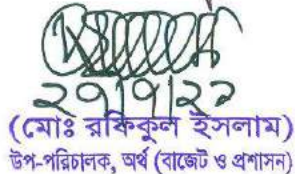 ২০/৭/২২
(মোঃ রফিকুল ইসলাম)
উপ-পরিচালক, অর্থ (বাজেট ও প্রশাসন)